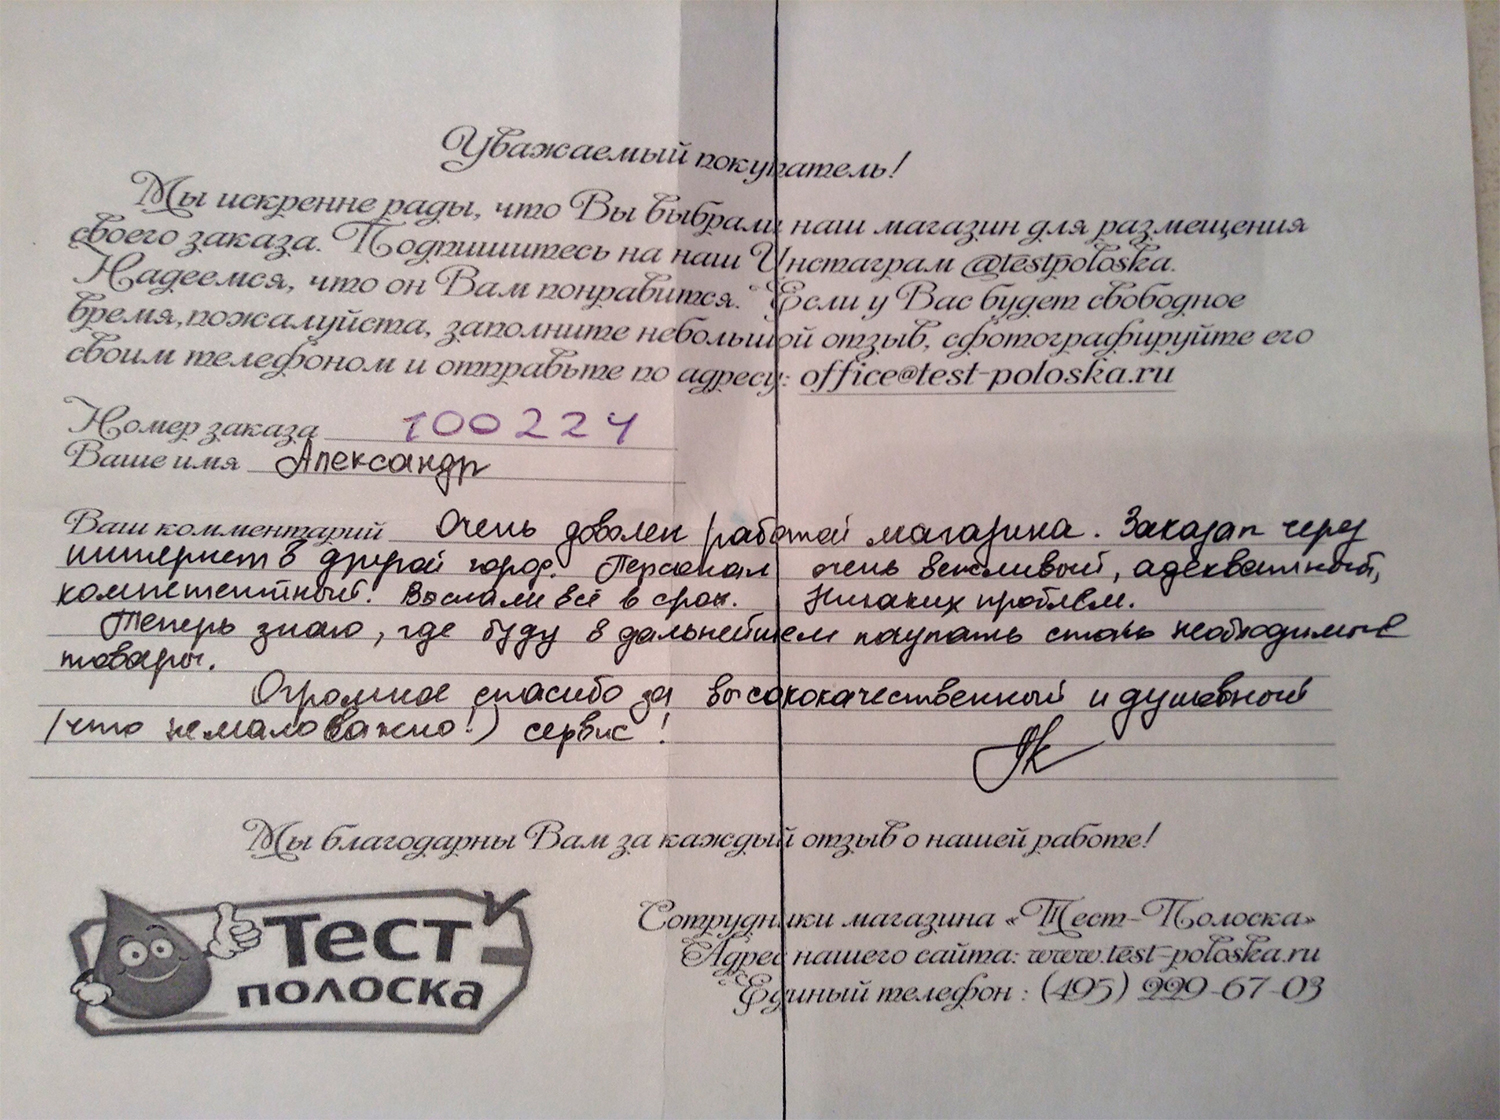 Уважаемый покупатель!
Мы искренне рады, что Вы выбрали наш магазин для размещения
своего заказа. Подпишитесь на наш Инстаграм @testpoloska.
Надеемся, что он Вам понравится. Если у Вас будет свободное
время, пожалуйста, заполните небольшой отзыв, сфотографируйте его
своим телефоном и отправьте по адресу: office@test-poloska.ru
Номер заказа 100224
Ваше имя Александр
Ваш комментарий Очень доволен работой магазина. Заказал через
интернет в другой город. Персонал очень вежливый, адекватный,
компетентный. Выслали всё в срок. Никаких проблем.
Теперь знаю, где буду в дальнейшем покупать столь необходимые
товары.
Огромное спасибо за высококачественный и душевный
(что немаловажно!) сервис!
Мы благодарны Вам за каждый отзыв о нашей работе!
Тест
полоска
Сотрудники магазина «Тест-Полоска»
Адрес нашего сайта: www.test-poloska.ru
Единый телефон : (495) 229-67-03